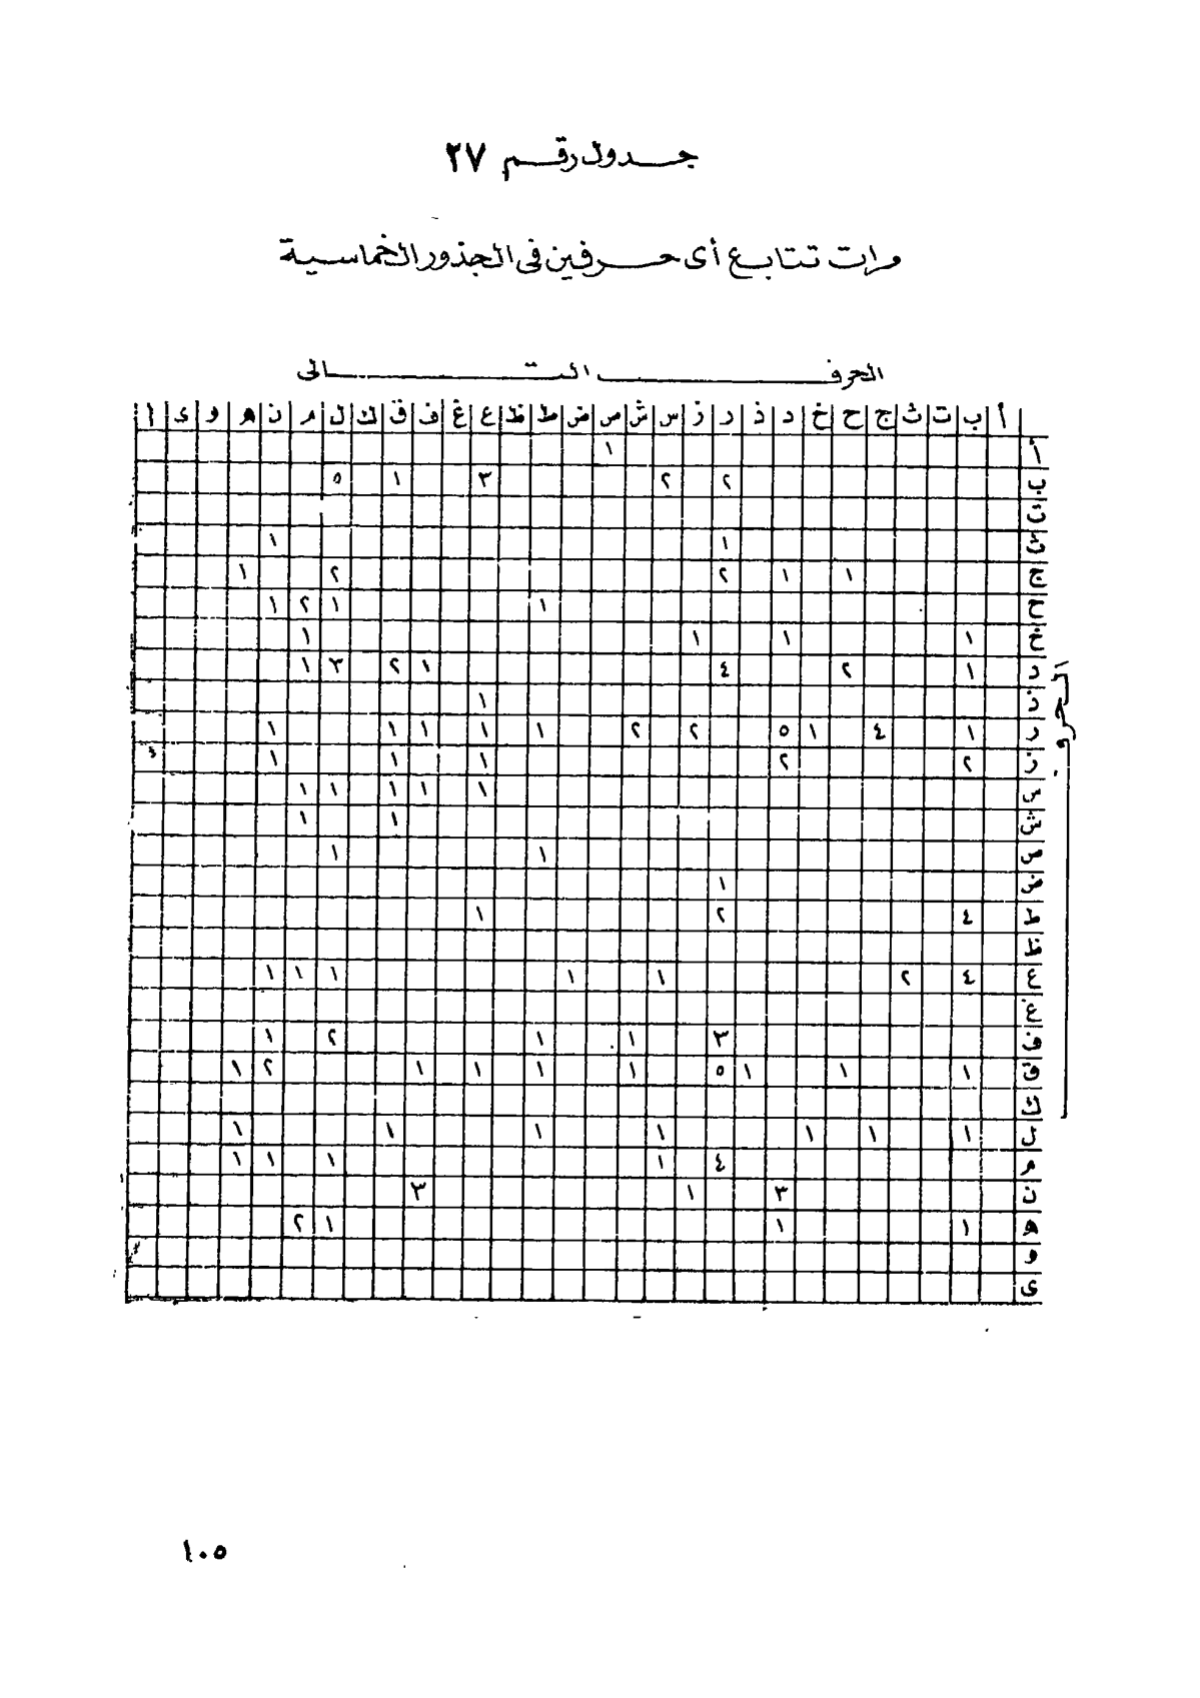 جدول رقم ٢٧
مرات تتابع أى حرفين فى الجذور الخماسية
الحرف التالى
أ ب ت ث ج ح خ د ذ ر ز س ش ص ض ط ظ ع غ ف ق ك ل م ن ه و ى ا
الحرف
أ ١
ب ٢ ٢ ٣ ١ ٥
ت
ث ١ ١
ج ١ ١ ٢ ٢ ١
ح ١ ١ ٢ ١
خ ١ ١ ١ ١
د ١ ٢ ٤ ١ ٢ ٣ ١
ذ ١
ر ١ ٤ ١ ٥ ٢ ٢ ١ ١ ١ ١ ١
ز ٢ ٢ ١ ١ ١
س ١ ١ ١ ١ ١
ش ١ ١
ص ١ ١
ض ١
ط ٤ ٢ ١
ظ
ع ٤ ٢ ١ ١ ١ ١ ١
غ
ف ٣ ١ ١ ٢ ١
ق ١ ١ ١ ٥ ١ ١ ١ ١ ٢ ١
ك
ل ١ ١ ١ ١ ١ ١ ١
م ٤ ١ ١ ١ ١
ن ٣ ١ ٣
ه ١ ١ ١ ٢
و
ى
١٠٥